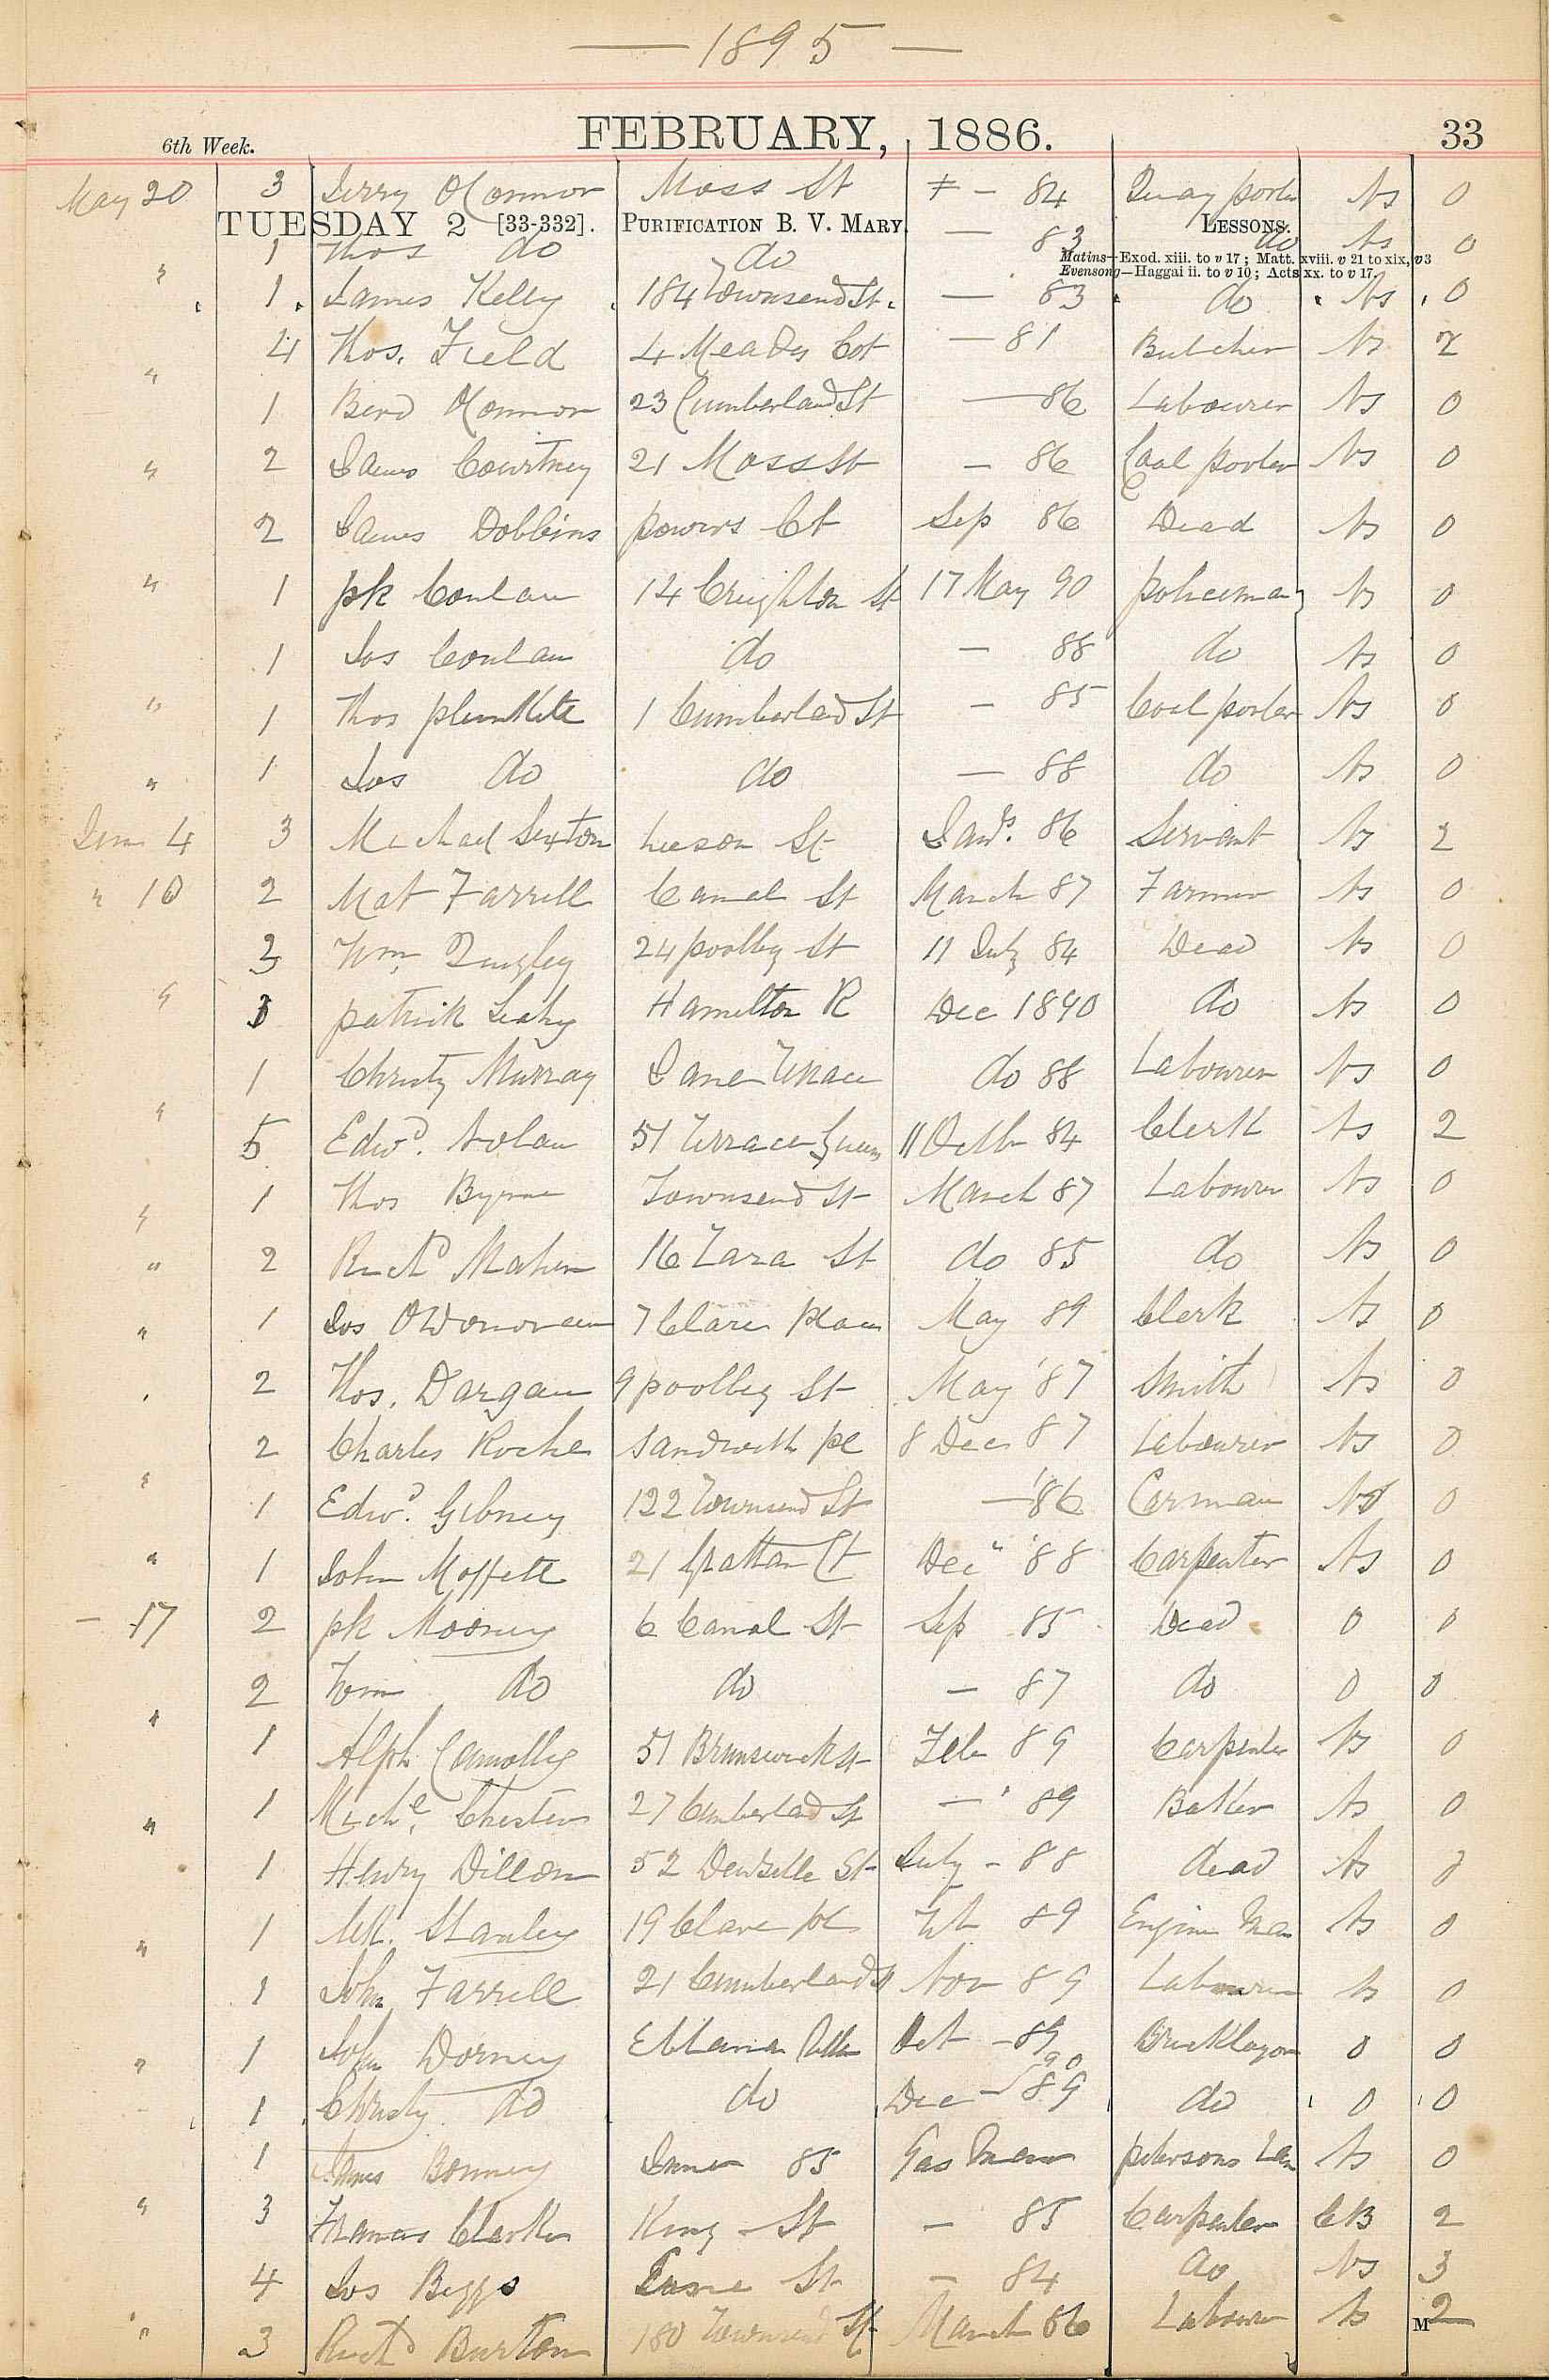 — 1895 —
6th Week. FEBRUARY, 1886. 33
May 20 3 Jerry O'Connor Moss St — 84 Quay porter Ns 0
TUESDAY 2 [33-332]. PURIFICATION B. V. MARY. LESSONS.
1 Thos do do — 83 do Ns 0
Matins—Exod. xiii. to v 17; Matt. xviii. v 21 to xix, v 3
Evensong—Haggai ii. to v 10; Acts xx. to v 17.
" 1 James Kelly 184 Townsend St. — 83 do Ns 0
4 Thos. Field 4 Meades Cot — 81 Butcher Ns 2
" 1 Bend O'Connor 23 Cumberland St — 86 Labourer Ns 0
" 2 James Courtney 21 Moss St — 86 Coal porter Ns 0
2 James Dobbins powers Ct Sep 86 Dead Ns 0
" 1 pk Conlan 14 Creighton St 17 May 90 policeman Ns 0
1 Jos Conlan do — 88 do Ns 0
" 1 Thos plunkett 1 Cumberland St — 85 Coal porter Ns 0
" 1 Jos do do — 88 do Ns 0
June 4 3 Michael Sexton Leeson St 86 Servant Ns 2
" 10 2 Mat Farrell Canal St March 87 Farmer Ns 0
Wm. Quigley 24 poolbeg St 11 July 84 Dead Ns 0
" patrick Leahy Hamilton R Dec 1890 do Ns 0
1 Christy Murray Terrace do 88 Labourer Ns 0
" 5 Edwd. Nolan 51 Terrace Queens 11 Octbr 84 Clerk Ns 2
" 1 Thos Byrne Townsend St March 87 Labourer Ns 0
" 2 Richd Maher 16 Tara St do 85 do Ns 0
" 1 Jos O'Donovan 7 Clare place May 89 Clerk Ns 0
2 Thos. Dargan 9 poolbeg St May '87 Smith Ns 0
2 Charles Roche Sandwith pl 8 Dec 87 Labourer Ns 0
" 1 Edwd. Gibney 122 Townsend St — '86 Carman Ns 0
" 1 John Moffett 21 Grattan Ct Decr '88 Carpenter Ns 0
— 17 2 pk Mooney 6 Canal St Sep 85 Dead 0 0
2 Wm do do — 87 do 0 0
" 1 Alph Connolly 51 Brunswick St Feb 89 Carpenter Ns 0
" 1 Michl. Chester 27 Cumberland St — 89 Baker Ns 0
1 Henry Dillon 52 Denzille St July - 88 dead Ns 0
" 1 Stanley 19 Clare pl Feb 89 Engine Man Ns 0
1 John Farrell 21 Cumberland St Nov 89 Labourer Ns 0
" 1 John Dorney Eblana Villas Oct - 89 Bricklayer 0 0
90
1 Christy do do Dec - 89 do 0 0
1 James Bonney June 85 Gas Man petersons Lane Ns 0
" 3 Francis Clarke King St — 85 Carpenter CB 2
4 Jos Beggs St — 84 do Ns 3
" 3 Richd Burton 180 Townsend St March 86 Labourer Ns 2
M